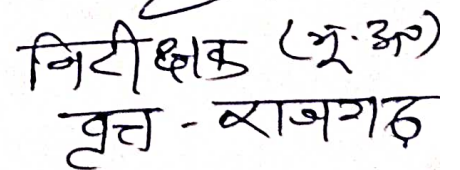 निरीक्षक (भू.अ०)
वृत्त - राजगढ़